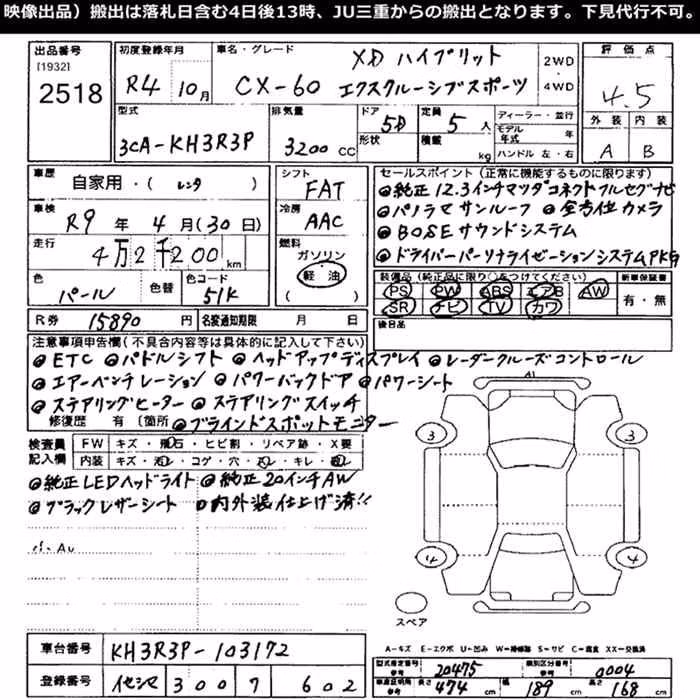 映像出品）搬出は落札日含む4日後13時、JU三重からの搬出となります。下見代行不可。
出品番号 [1932] 2518
初度登録年月 R4 10月
車名・グレード CX-60 XD ハイブリット エクスクルーシブスポーツ
2WD・4WD
評価点 4.5
外装 A 内装 B
型式 3CA-KH3R3P
排気量 3200 CC
ドア 5D 形状
定員 5 人 積載 kg
ディーラー・並行
モデル年式 年
ハンドル 左・右
車歴 自家用・( レンタ )
車検 R9 年 4 月 (30 日)
走行 4万2千200 km
色 パール 色替 色コード 51K
シフト FAT
冷房 AAC
燃料 ガソリン 軽油 ( )
R券 15890 円 名変通知期限 月 日
セールスポイント (正常に機能するものに限ります)
◎純正12.3インチマツダコネクトフルセグナビ
◎パノラマサンルーフ ◎全方位カメラ
◎BOSEサウンドシステム
◎ドライバーパーソナライゼーションシステムPKG
装備品 (純正品に限り○をつけてください)
PS PW ABS エアB AW
SR ナビ TV カワ
新車保証書 有・無
後日品
注意事項申告欄 (不具合内容等は具体的に記入して下さい)
◎ETC ◎パドルシフト ◎ヘッドアップディスプレイ ◎レーダークルーズコントロール
◎エアーベンチレーション ◎パワーバックドア ◎パワーシート
◎ステアリングヒーター ◎ステアリングスイッチ
修復歴 有 [箇所 ◎ブラインドスポットモニター
検査員記入欄 FW キズ・飛石・ヒビ割・リペア跡・X要
内装 キズ・汚レ・コゲ・穴・・キレ・
◎純正LEDヘッドライト ◎純正20インチAW
◎ブラックレザーシート ◎内外装仕上げ済!!
A1
3 3
4 4
スペア
A－キズ E－エクボ U－凹み W－補修跡 S－サビ C－腐食 XX－交換済
車台番号 KH3R3P-103172
登録番号 イセシマ 300 ワ 602
型式指定番号 参考 20475 類別区分番号 参考 0004
車庫証明用 参考 長さ 474 cm 幅 189 cm 高さ 168 cm